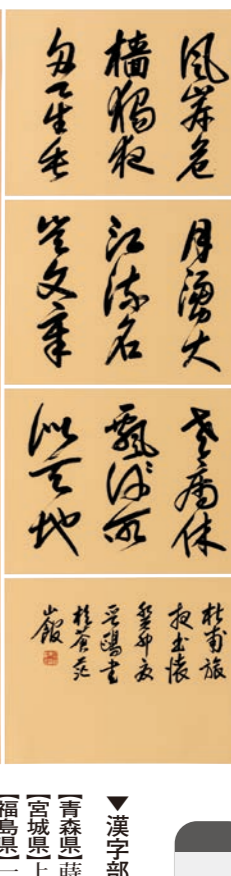 風岸危
檣獨夜
舟星垂
月湧大
江流名
豈文章
老病休
飄々何所
似天地
杜甫旅
夜書懐
癸卯夏
鷗書
於蒼茫
山館
▼漢字部
【青森県】蒔
【宮城県】上
【福島県】一